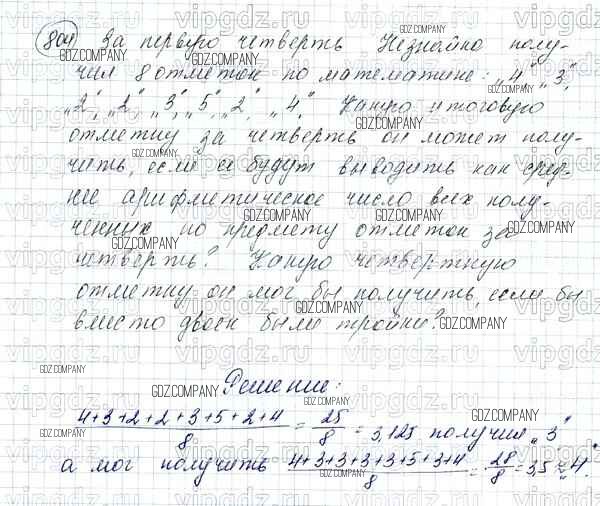 804 За первую четверть Незнайка полу-
чил 8 отметок по математике: „4", „3",
„2", „2", „3", „5", „2", „4". Какую итоговую
отметку за четверть он может полу-
чить, если её будут выводить как сред-
нее арифметическое число всех полу-
ченных по предмету отметок за
четверть? Какую четвертную
отметку он мог бы получить, если бы
вместо двоек были тройки?
Решение:
4+3+2+2+3+5+2+4/8 = 25/8 = 3,125 получил „3"
а мог получить 4+3+3+3+3+5+3+4/8 = 28/8 = 3,5 ≈ „4".